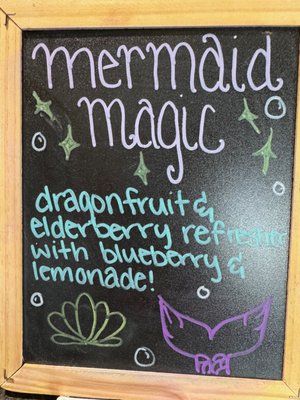 mermaid
magic
dragonfruit &
elderberry refresher
with blueberry &
lemonade!